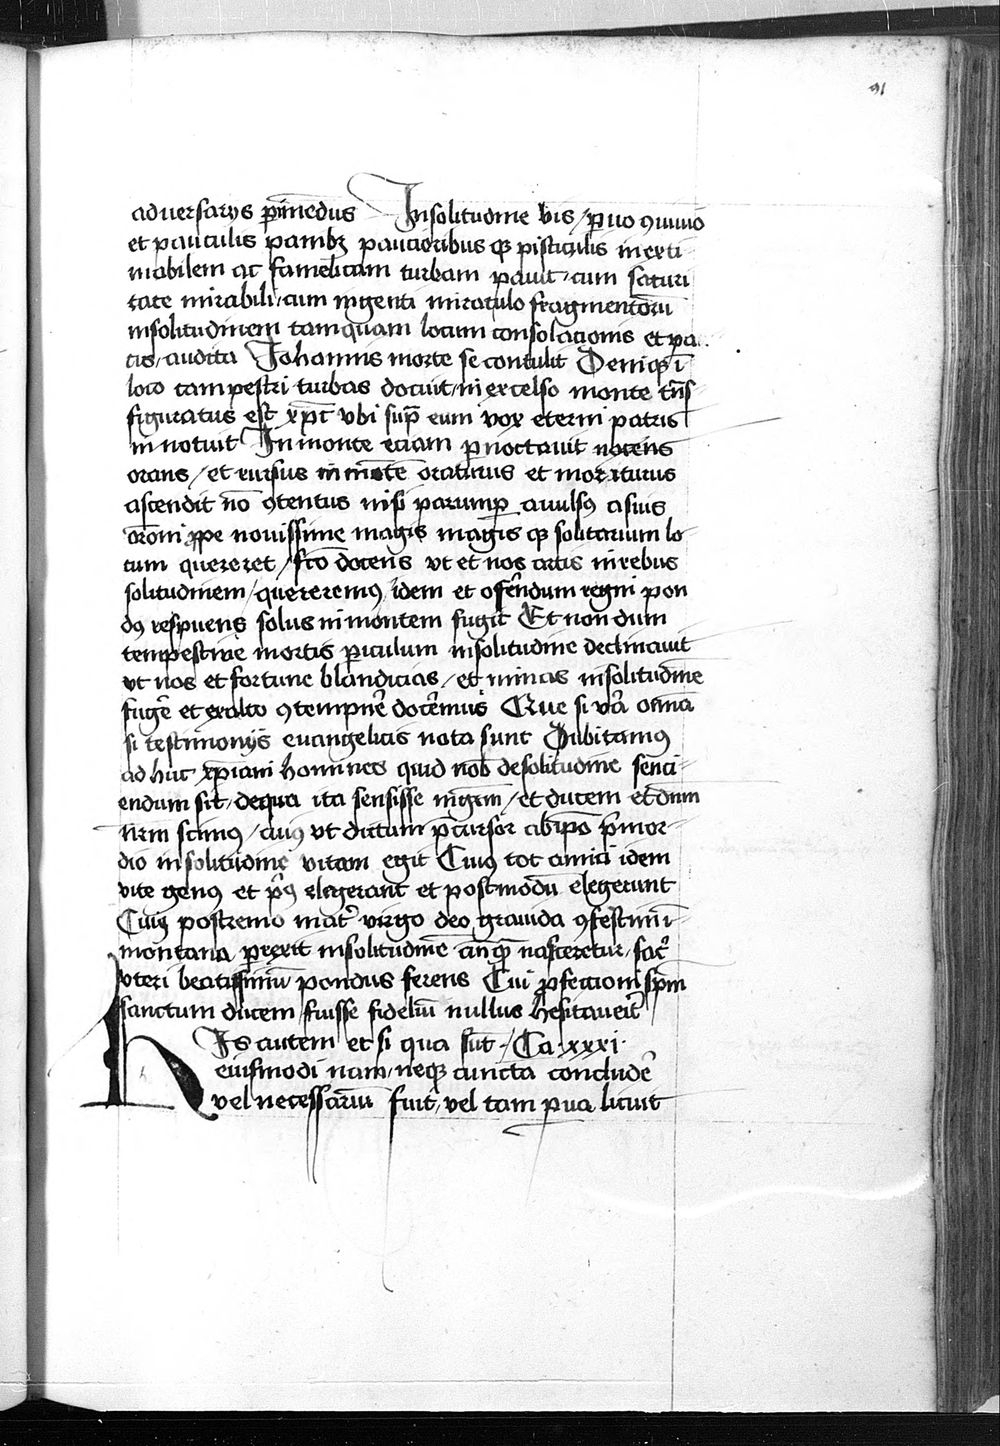 91
adversarys p̄imēdus Insolitudine bis / p̱uo ꝯuiuio
et pauculis panibꝫ paucioribus qꝫ pisciculis inexti
mabilem ac famelicam turbam pauit / cum saturi
tate mirabili / cum ingenti miraculo fragmentorū
insolitudinem tamquam locum consolacionis et pa
cis / audita Johannis morte se contulit Deniqꝫ ī
loco campestri turbas docuit / in excelso monte trn̄s
figuratus est xp̄c vbi sup̄ eum vox eterni patris
in notuit In monte eciam p̱noctauit noctens
orans / et rursus in mōte oraturus et moriturus
ascendit nō ꝯtentus nisi parump̱ auulsꝰ asuis
orōni ꝓpe nouissime magis magis qꝫ solitarium lo
cum quereret / sc̄o docens vt et nos artis inrebus
solitudinem / quereremꝰ idem et ofe᷑ndum regni pon
dꝰ respuens solus in montem fugit Et non dum
tempestiue mortis p̱iculum insolitudine declinauit
vt nos et fortune blandicias / et minas insolitudine
fuge᷑ et exalto ꝯtempne᷑ doce᷑mus Que si va᷑ omīa
si testimonijs euangelicis nota sunt Dubitamꝰ
ad huc xp̄iani homines quid nob̄ desolitudine senci
endum sit / dequa ita sensisse mgr̄m / et ducem et dn̄m
nrm̄ scimꝰ / cuiꝰ vt dictum p̄cursor abip̄o p̄mor
dio insolitudine vitam egit Cuiꝰ tot amici idem
vite genus et pꝰ elegerant et postmodū elegerunt
Cuiꝰ postremo mat᷑ virgo deo grauida ꝯfestim ī
montana p̱rexit insolitudinē anqꝫ nasceretur / sac᷑
vteri beatissimū pondus ferens Cui ꝓfectioni sp̄m
sanctum ducem fuisse fideliū nullus hesitaue᷑it
HIs autem et si qua sūt / Ca. xxxi.
eiusmodi nam / neqꝫ cuncta conclude᷑
vel necessariū fuit / vel tam p̱ua licuit